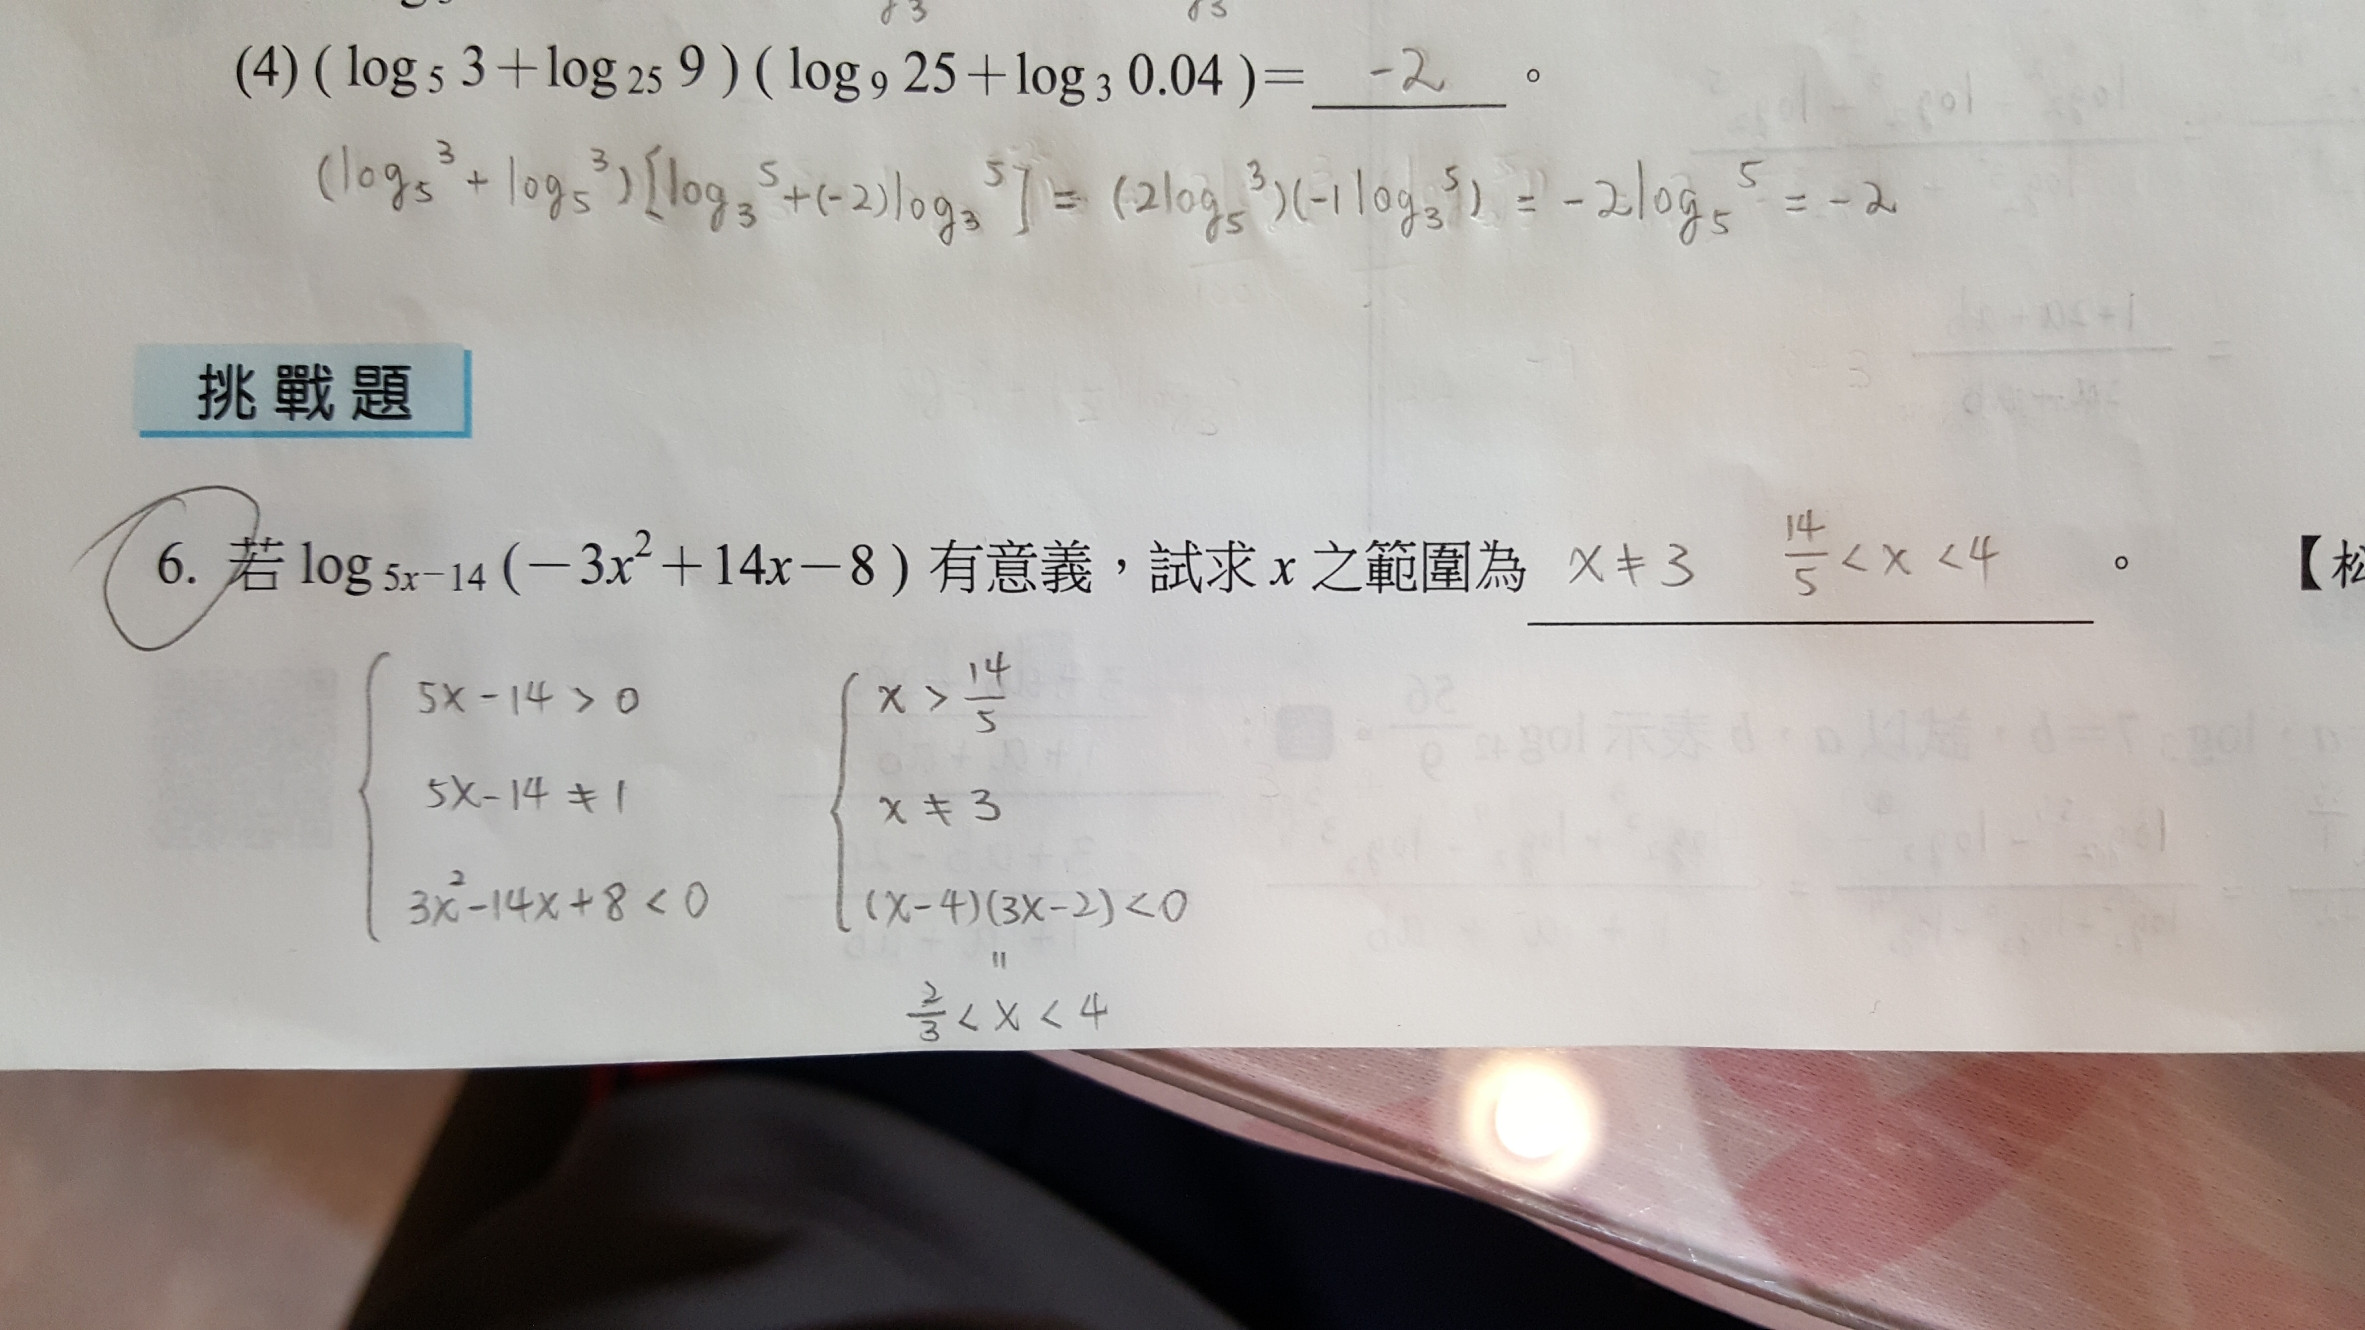 (4) ( log₅ 3 + log₂₅ 9 ) ( log₉ 25 + log₃ 0.04 ) = -2 。
(log₅³ + log₅³)[log₃⁵ + (-2)log₃⁵] = (2log₅³)(-1log₃⁵) = -2log₅⁵ = -2
挑戰題
6. 若 log₅ₓ₋₁₄ (-3x²+14x-8) 有意義，試求 x 之範圍為 x≠3 14/5 < x < 4 。 【松
5x-14 > 0 x > 14/5
5x-14 ≠ 1 x ≠ 3
3x²-14x+8 < 0 (x-4)(3x-2) < 0
=
2/3 < x < 4